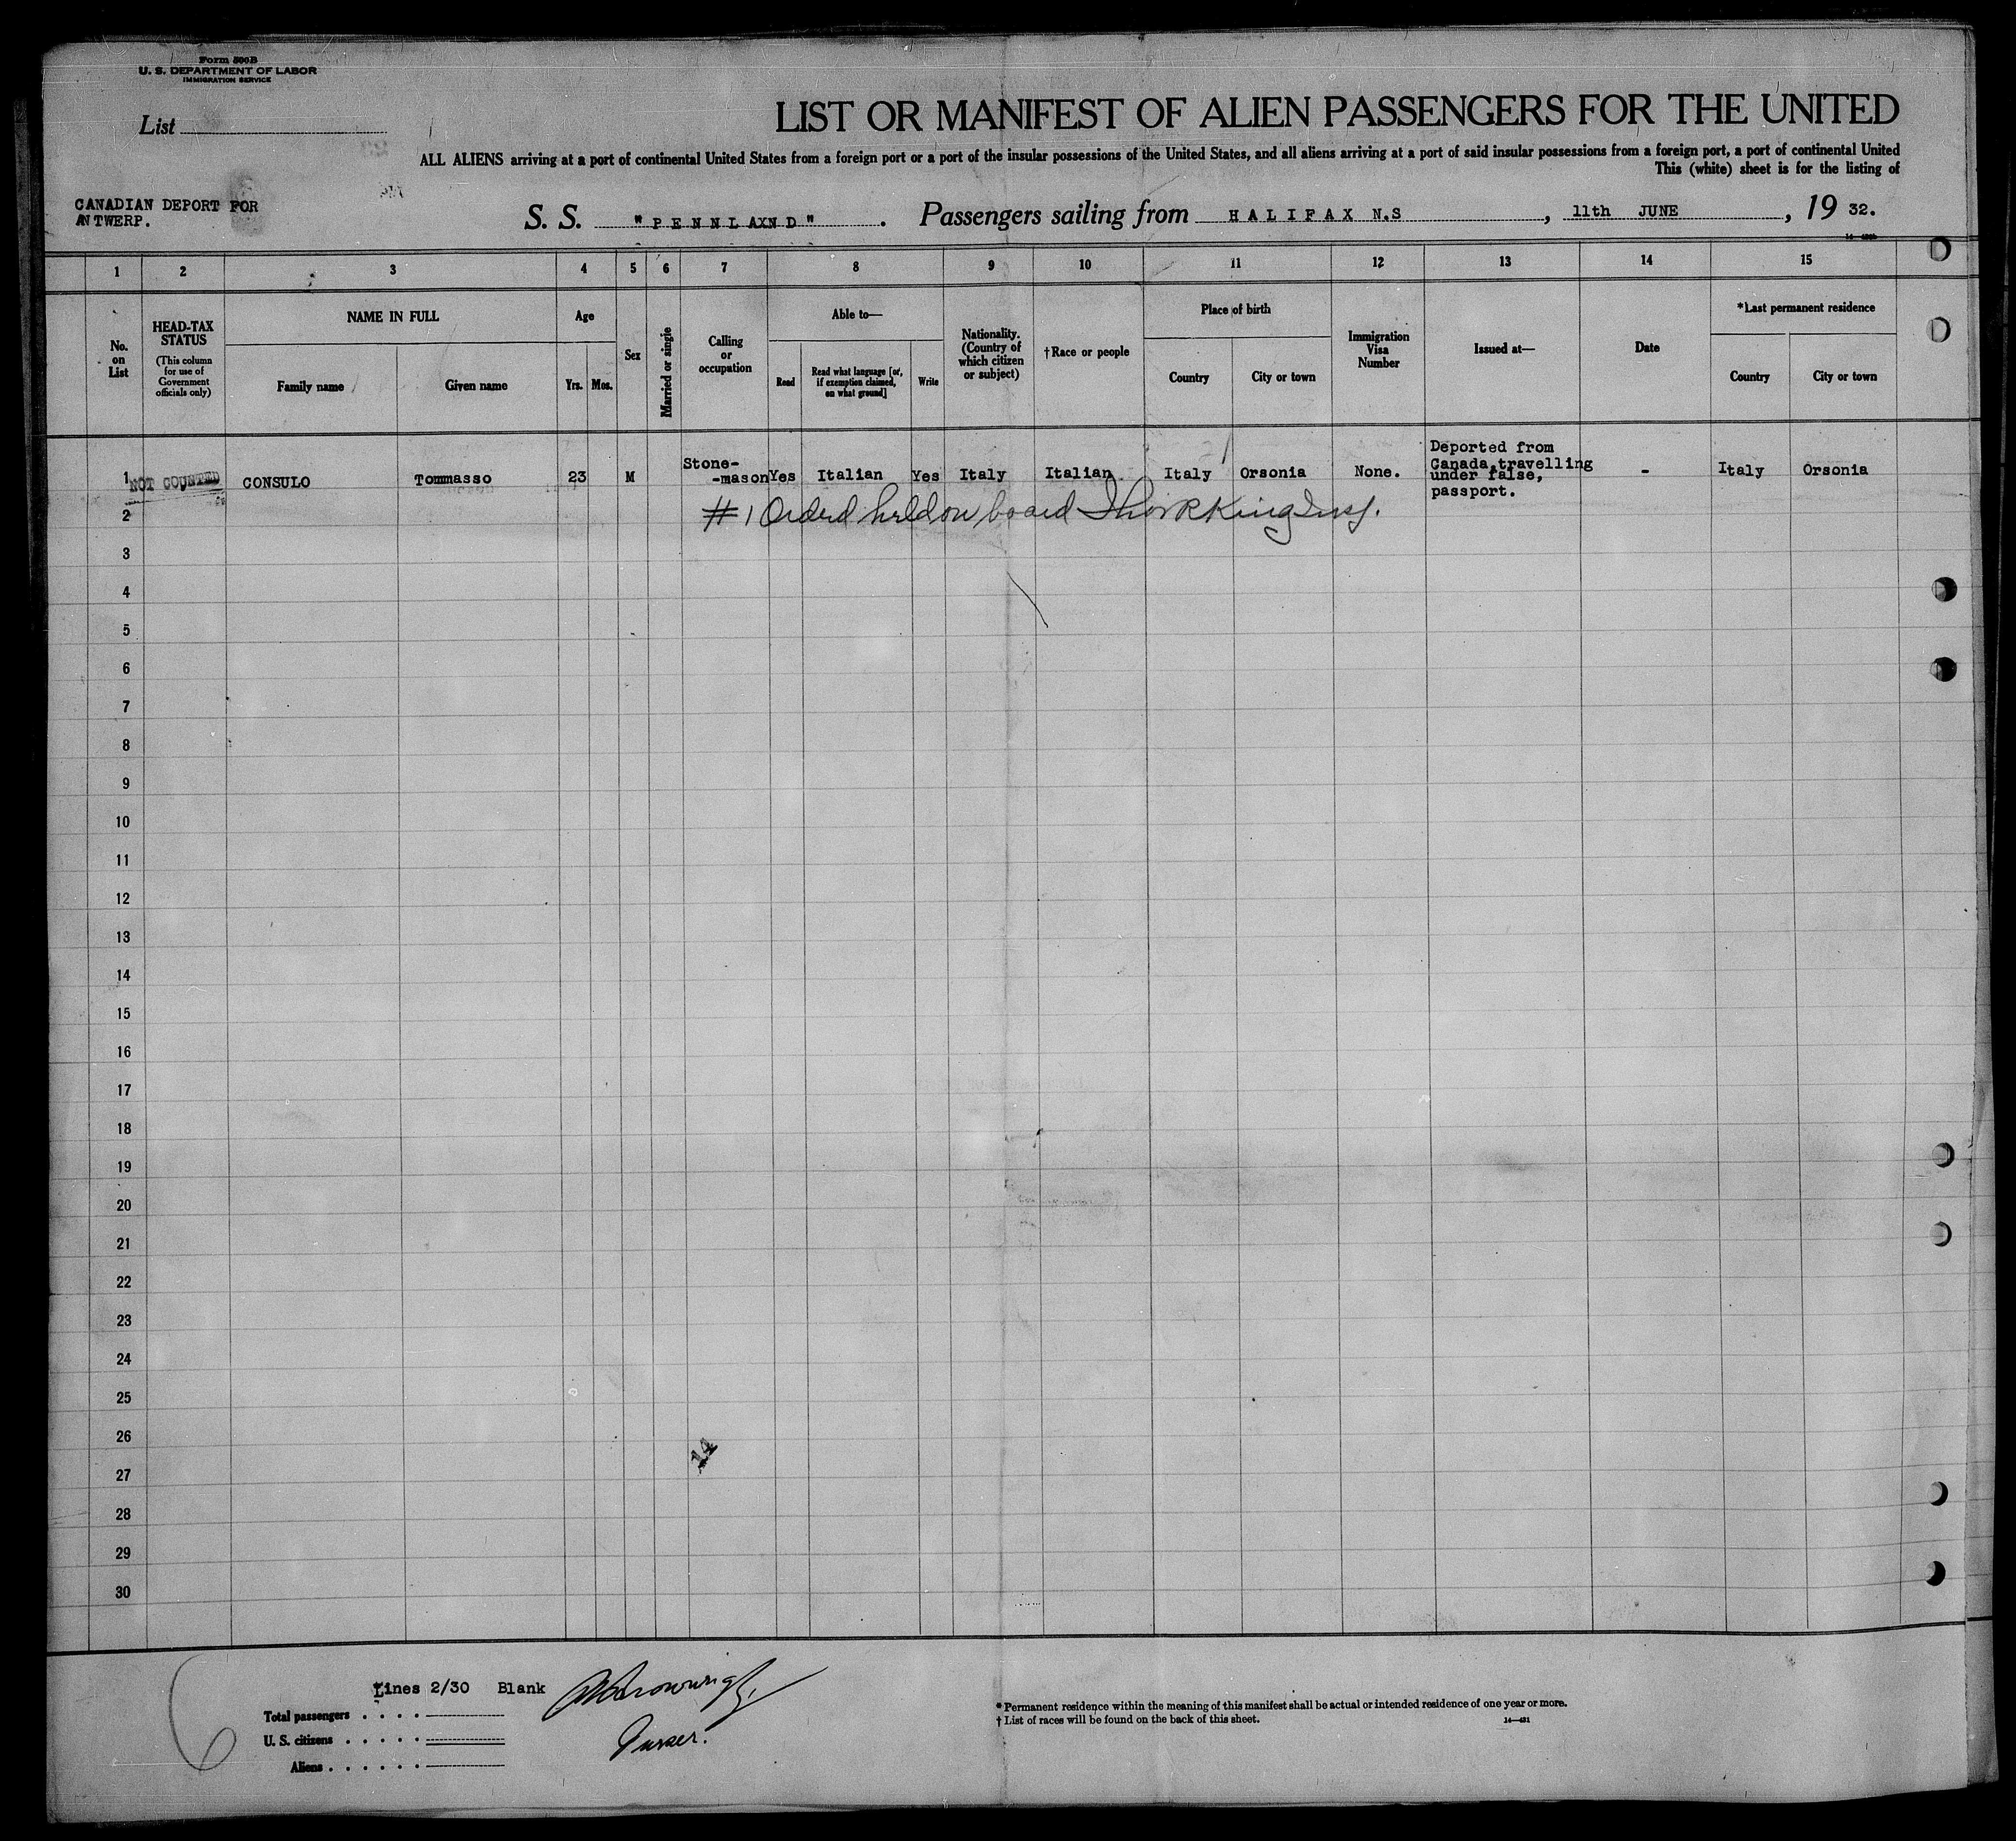 Form 500B
U. S. DEPARTMENT OF LABOR
IMMIGRATION SERVICE
List
LIST OR MANIFEST OF ALIEN PASSENGERS FOR THE UNITED
ALL ALIENS arriving at a port of continental United States from a foreign port or a port of the insular possessions of the United States, and all aliens arriving at a port of said insular possessions from a foreign port, a port of continental United
This (white) sheet is for the listing of
CANADIAN DEPORT FOR
ANTWERP.
S. S. "PENNLAXND". Passengers sailing from HALIFAX N.S, 11th JUNE, 19 32.
1 2 3 4 5 6 7 8 9 10 11 12 13 14 15
No. on List
HEAD-TAX STATUS
(This column for use of Government officials only)
NAME IN FULL
Family name Given name
Age
Yrs. Mos.
Sex
Married or single
Calling or occupation
Able to—
Read Read what language [or, if exemption claimed, on what ground] Write
Nationality. (Country of which citizen or subject)
†Race or people
Place of birth
Country City or town
Immigration Visa Number
Issued at—
Date
*Last permanent residence
Country City or town
1 NOT COUNTED CONSULO Tommasso 23 M Stone- -mason Yes Italian Yes Italy Italian Italy Orsonia None. Deported from Canada,travelling under false, passport. - Italy Orsonia
2 #1 Orderd held on board King Insp.
3
4
5
6
7
8
9
10
11
12
13
14
15
16
17
18
19
20
21
22
23
24
25
26
14
27
28
29
30
Lines 2/30 Blank
Total passengers . . . .
U. S. citizens . . . . .
Aliens . . . . . .
Purser.
* Permanent residence within the meaning of this manifest shall be actual or intended residence of one year or more.
† List of races will be found on the back of this sheet.
14—431